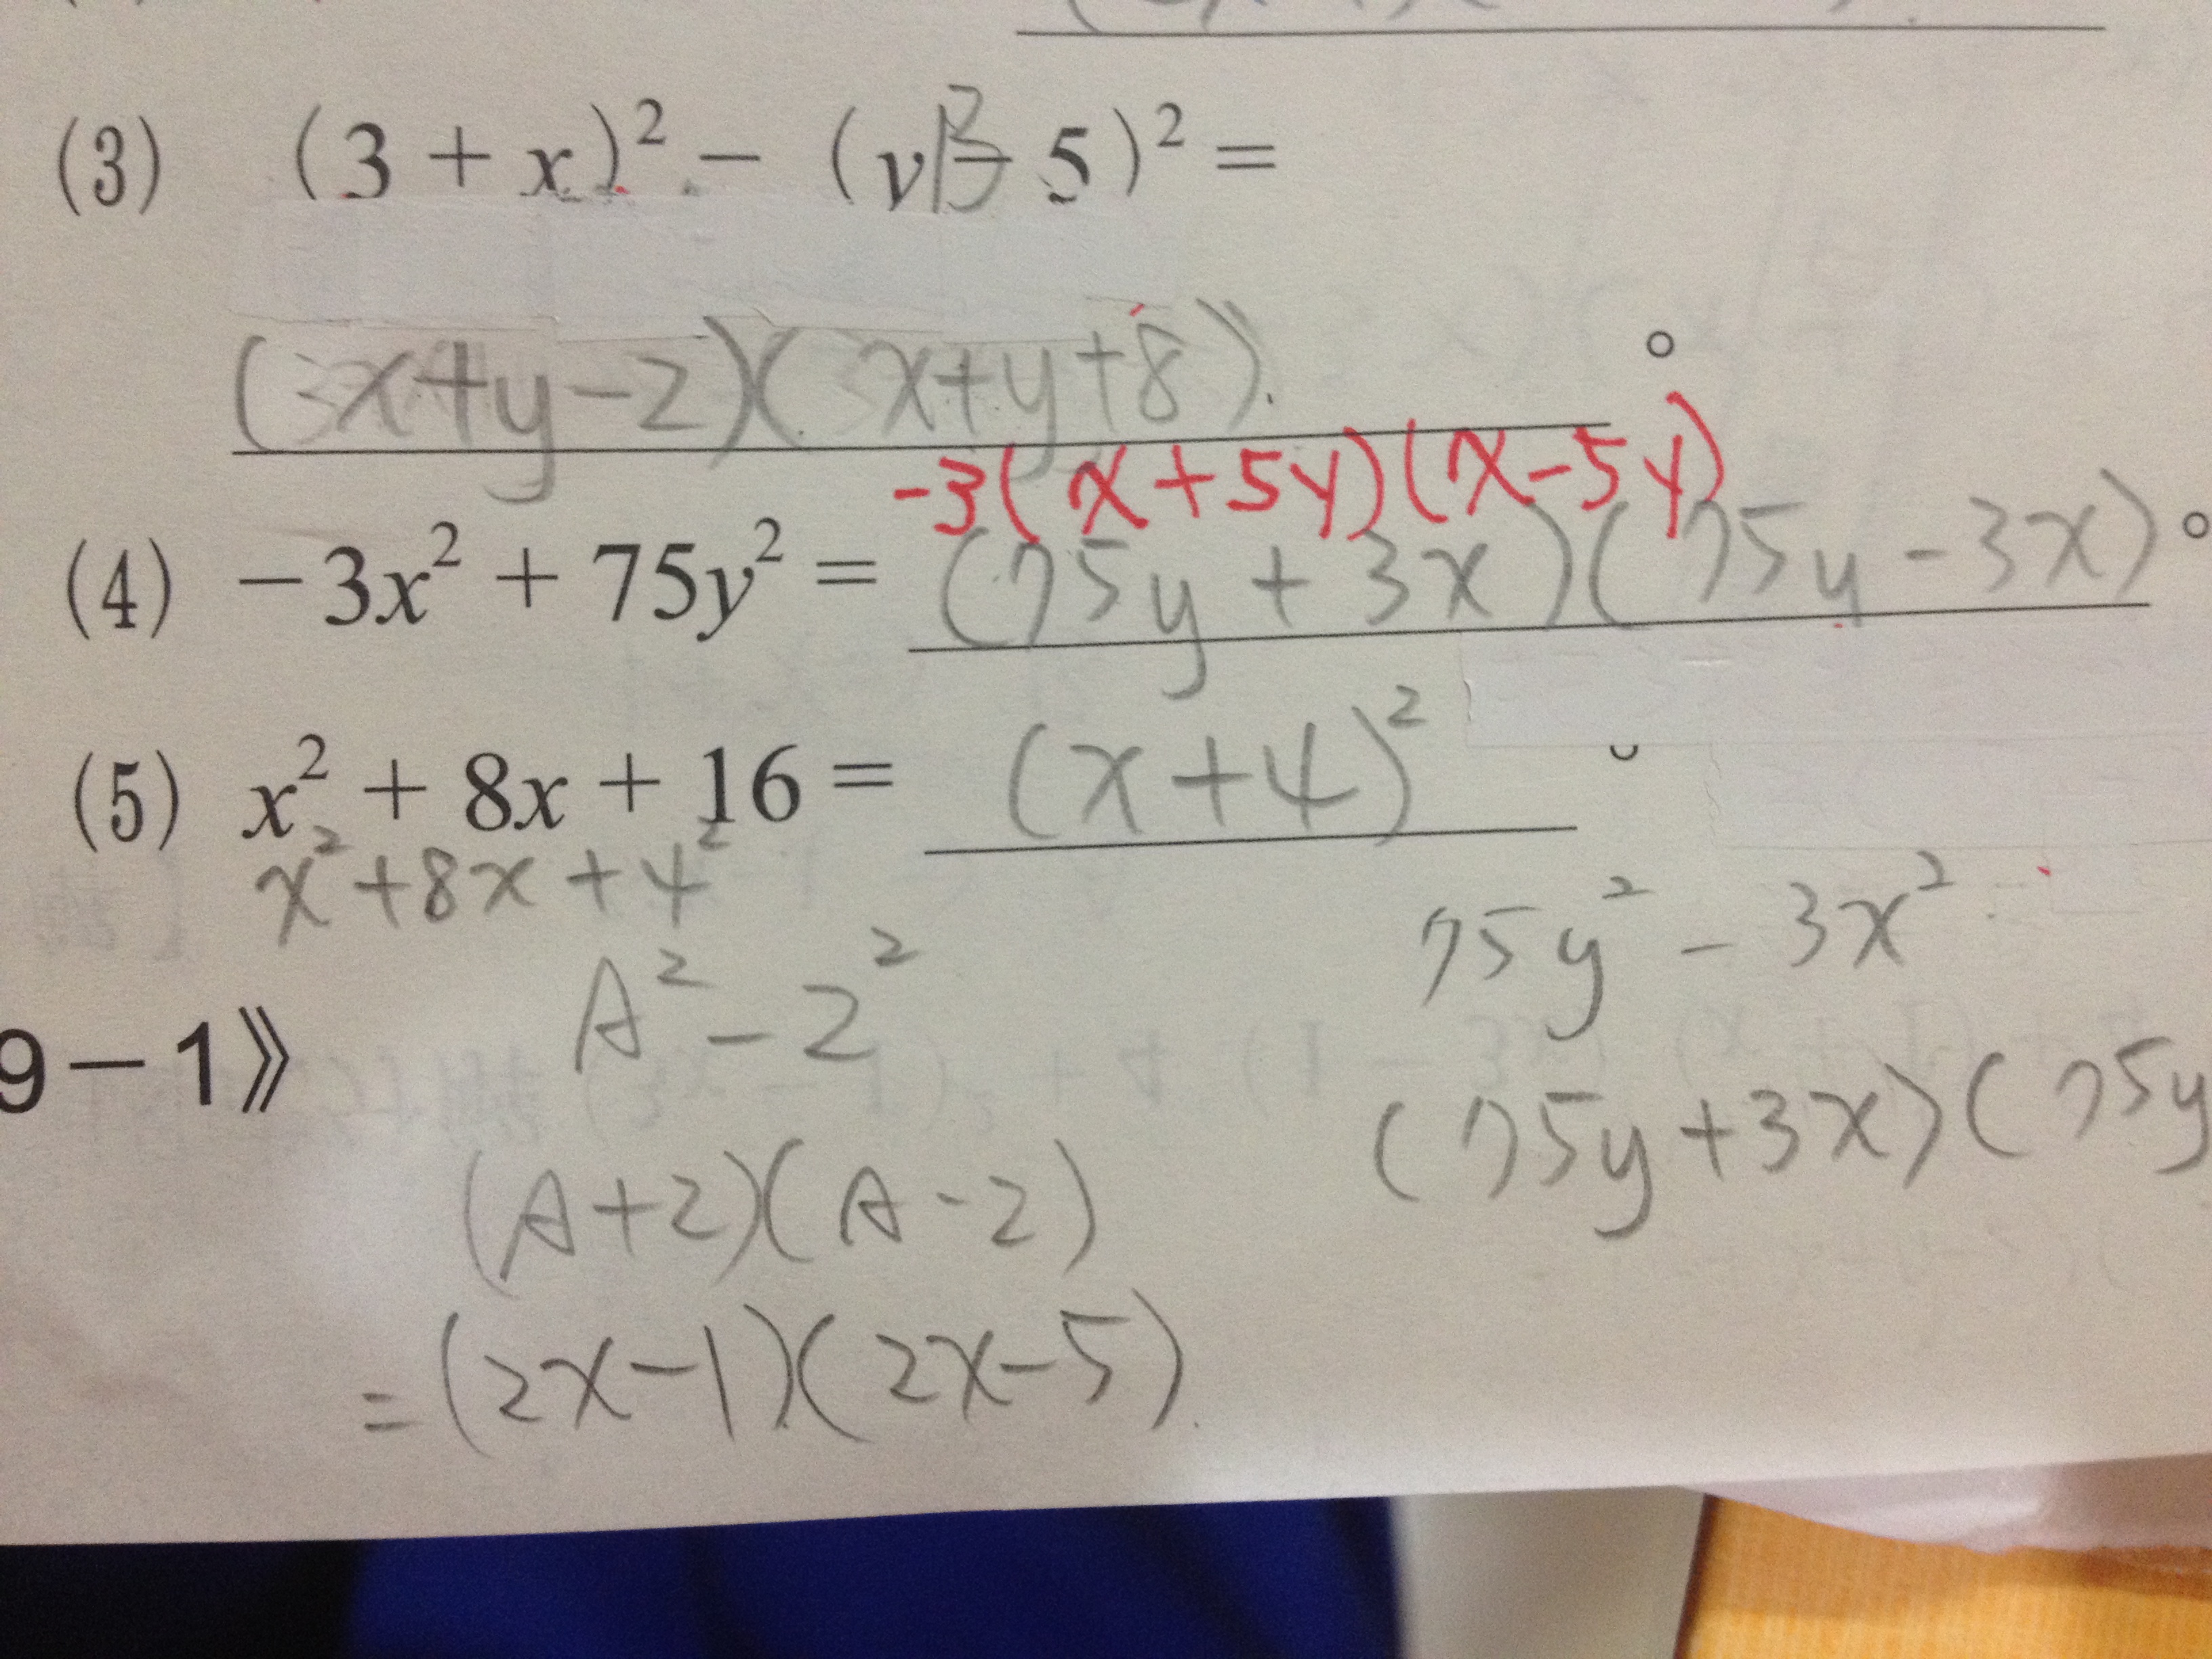 (3) (3 + x)² − (y − 5)² =
(x+y−2)(x+y+8)。
−3(x+5y)(x−5y)
(4) −3x² + 75y² = (75y+3x)(75y−3x)。
(5) x² + 8x + 16 = (x+4)²
x²+8x+4²
75y² − 3x²
A² − 2²
9−1》
(75y+3x)(75y
(A+2)(A−2)
=(2x−1)(2x−5)